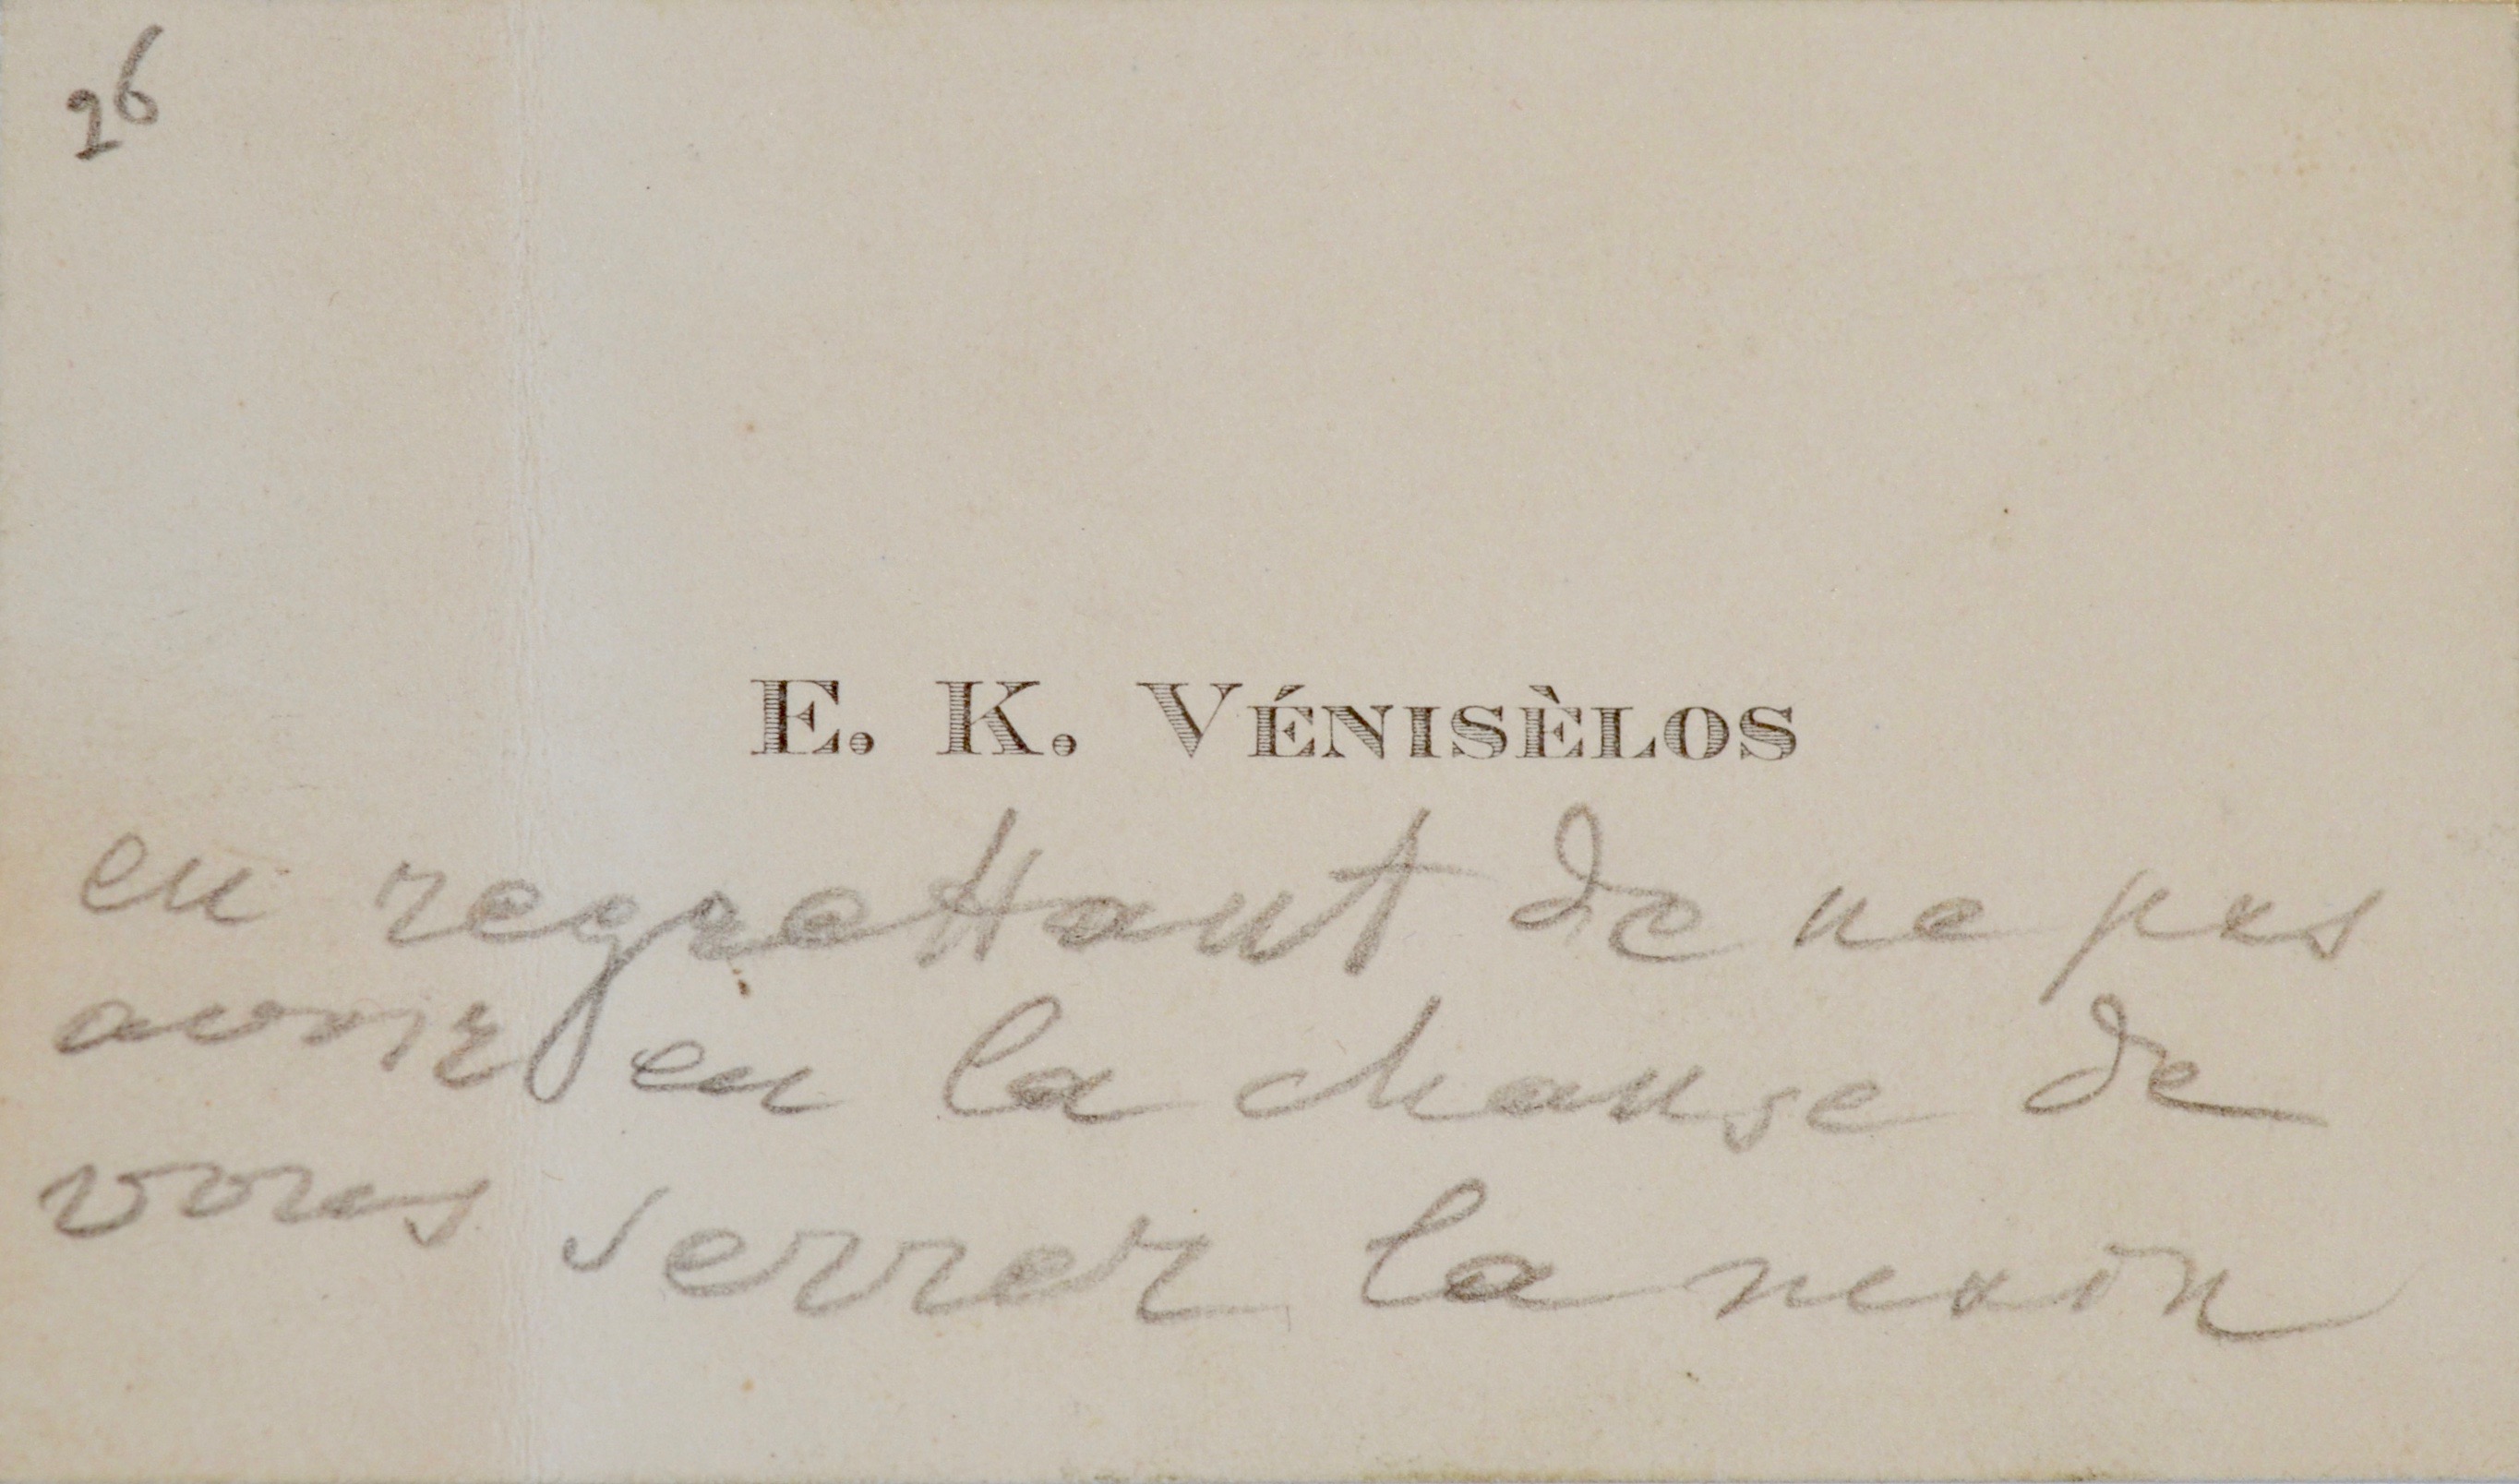 26
E. K. VÉNISÈLOS
en regrettant de ne pas
avoir eu la chanse de
vous serrer la main